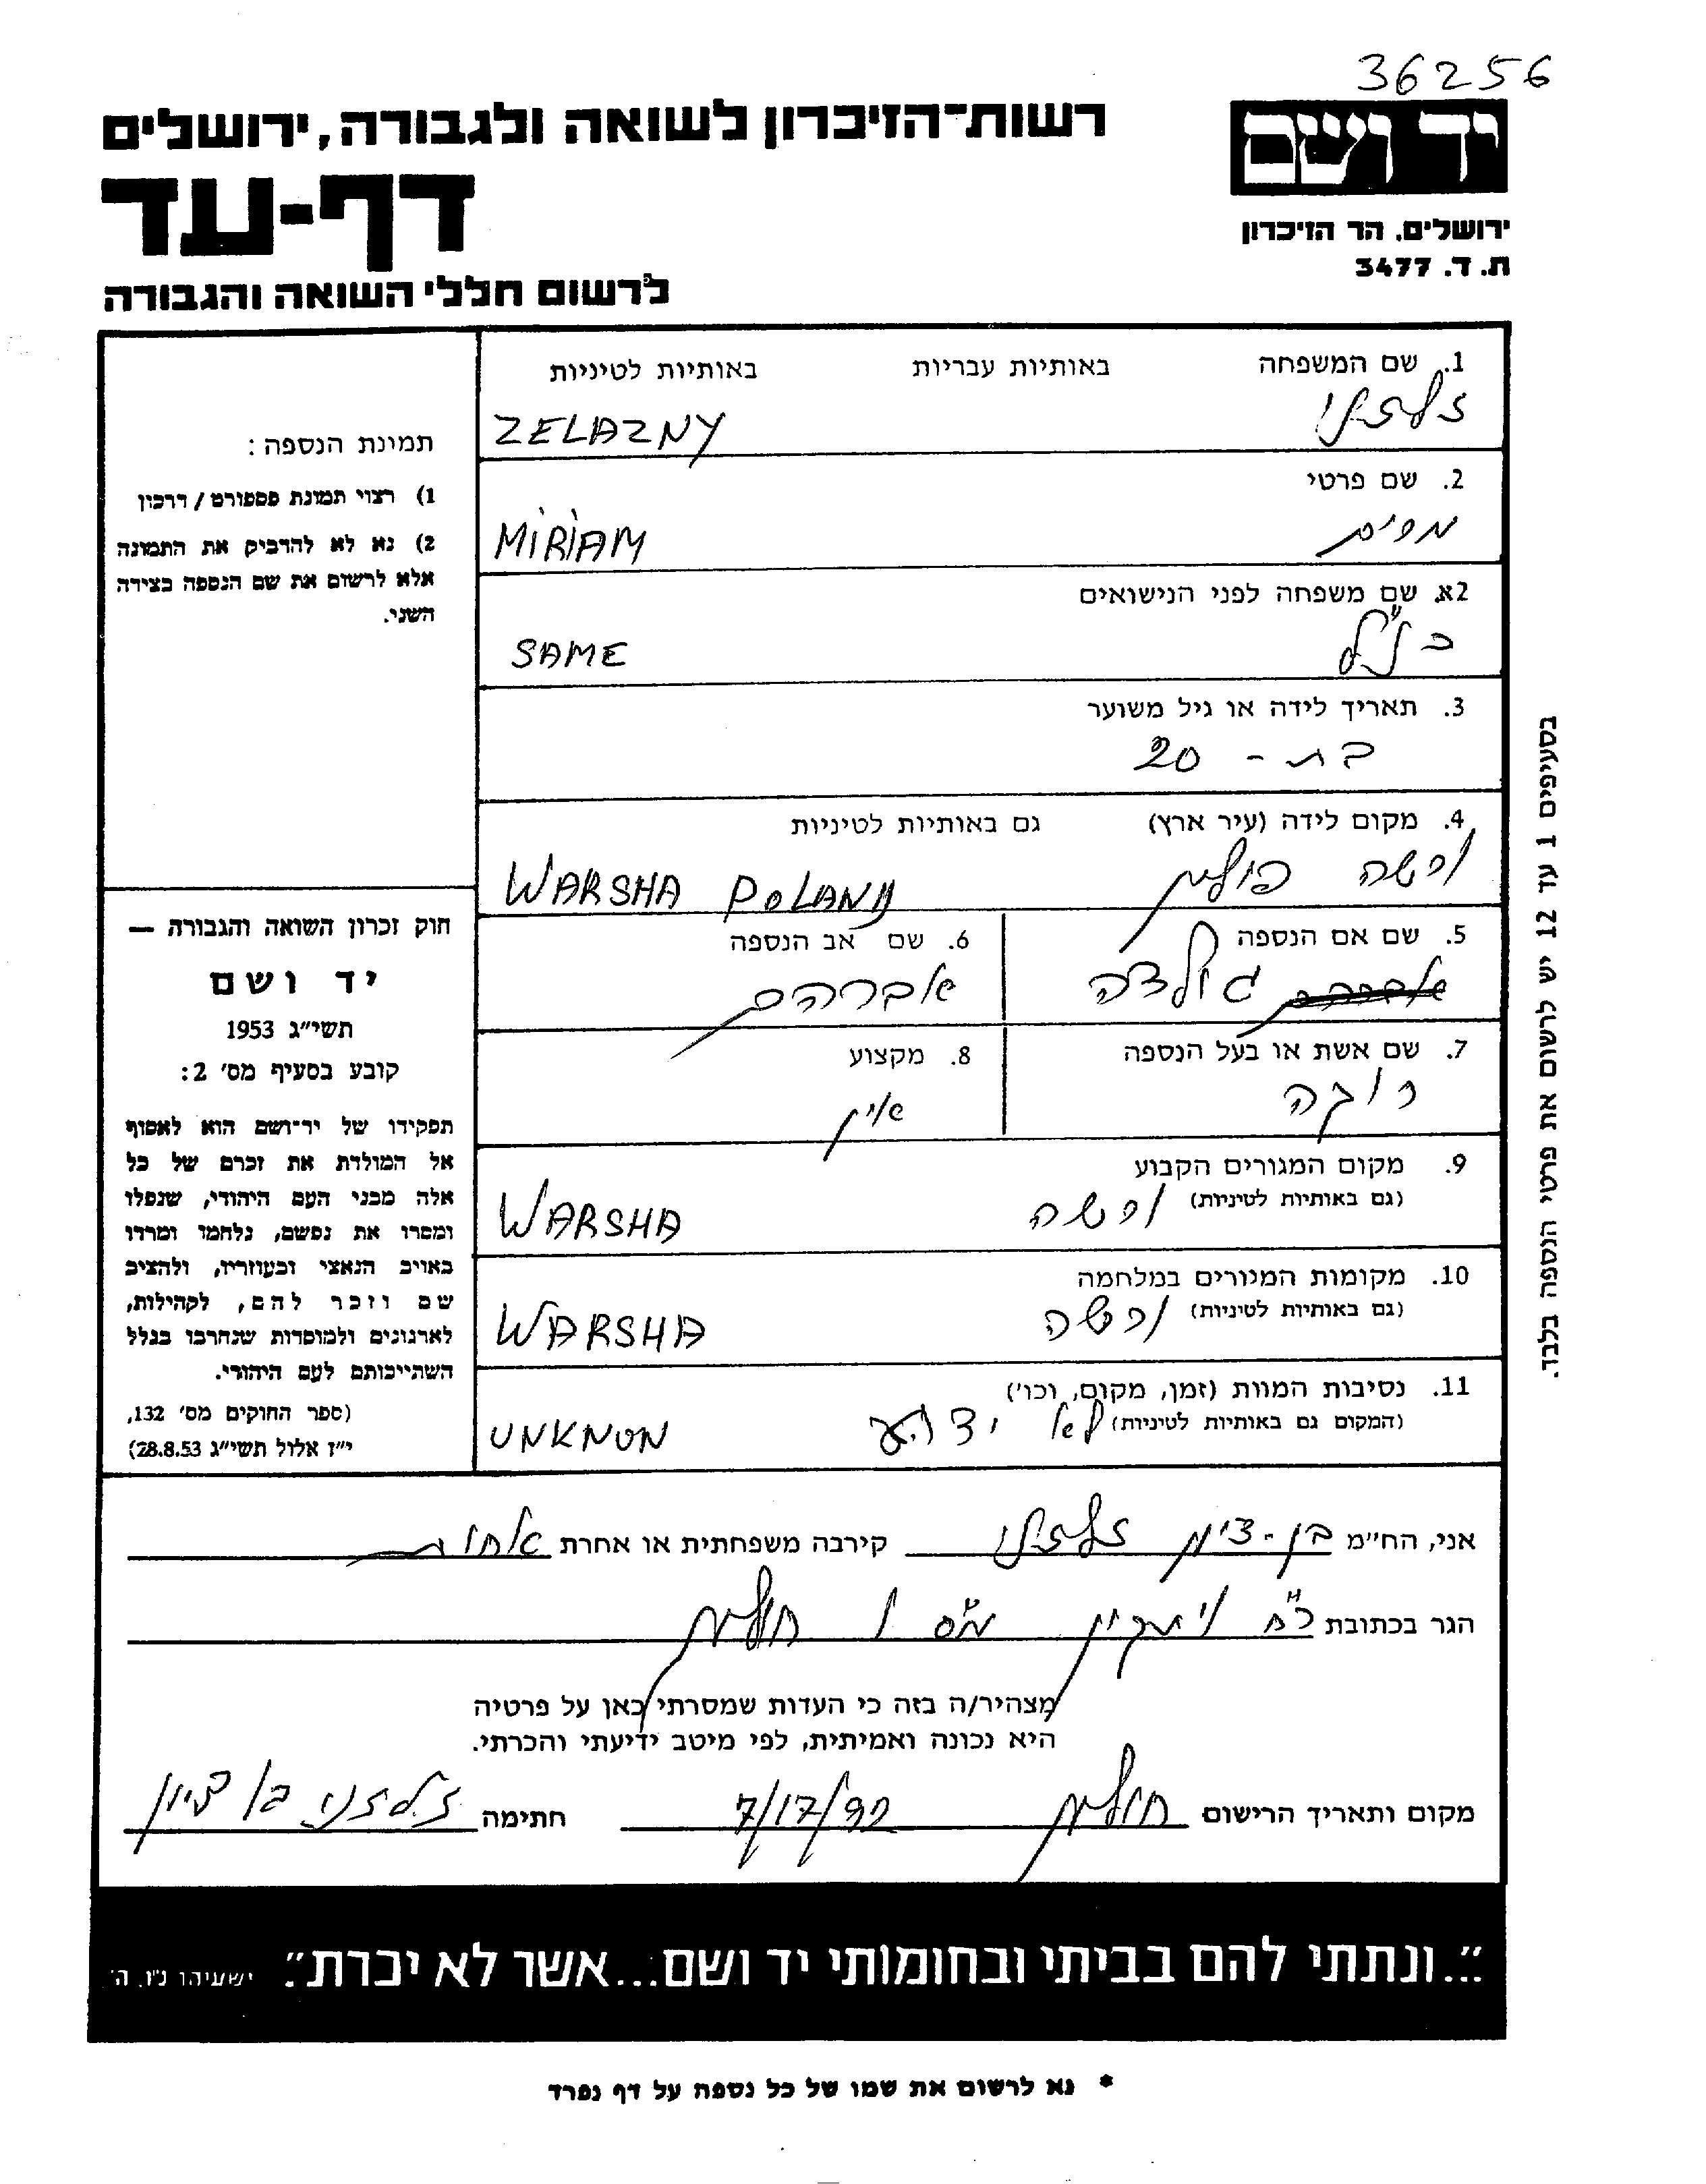 36256
יד ושם
ירושלים. הר הזיכרון
ת. ד. 3477
רשות־הזיכרון לשואה ולגבורה, ירושלים
דף-עד
לרשום חללי השואה והגבורה
1. שם המשפחה באותיות עבריות באותיות לטיניות
זלזני ZELAZNY
2. שם פרטי
מרים MIRIAM
2א. שם משפחה לפני הנישואים
כנ"ל SAME
3. תאריך לידה או גיל משוער
בת - 20
4. מקום לידה (עיר ארץ) גם באותיות לטיניות
ורשה פולין WARSHA POLAND
5. שם אם הנספה
גולדה
6. שם אב הנספה
אברהם
7. שם אשת או בעל הנספה
רווקה
8. מקצוע
אין
9. מקום המגורים הקבוע
(גם באותיות לטיניות) ורשה WARSHA
10. מקומות המגורים במלחמה
(גם באותיות לטיניות) ורשה WARSHA
11. נסיבות המוות (זמן, מקום, וכו')
(המקום גם באותיות לטיניות) לא ידוע UNKNON
תמונת הנספה:
1) רצוי תמונת פספורט / דרכון
2) נא לא להדביק את התמונה
אלא לרשום את שם הנספה בצידה
השני.
חוק זכרון השואה והגבורה —
יד ושם
תשי"ג 1953
קובע בסעיף מס' 2:
תפקידו של יד־ושם הוא לאסוף
אל המולדת את זכרם של כל
אלה מבני העם היהודי, שנפלו
ומסרו את נפשם, נלחמו ומרדו
באויב הנאצי ובעוזריו, ולהציב
שם וזכר להם, לקהילות,
לארגונים ולמוסדות שנחרבו בגלל
השתייכותם לעם היהודי.
(ספר החוקים מס' 132,
י"ז אלול תשי"ג 28.8.53)
בסעיפים 1 עד 12 יש לרשום את פרטי הנספה בלבד.
אני, הח"מ בן-ציון זלזני קירבה משפחתית או אחרת אחות
הגר בכתובת חולון
מצהיר/ה בזה כי העדות שמסרתי כאן על פרטיה
היא נכונה ואמיתית, לפי מיטב ידיעתי והכרתי.
מקום ותאריך הרישום חולון 7/17/92 חתימה זלזני בן ציון
"...ונתתי להם בביתי ובחומותי יד ושם...אשר לא יכרת". ישעיהו נ"ו, ה'.
* נא לרשום את שמו של כל נספה על דף נפרד